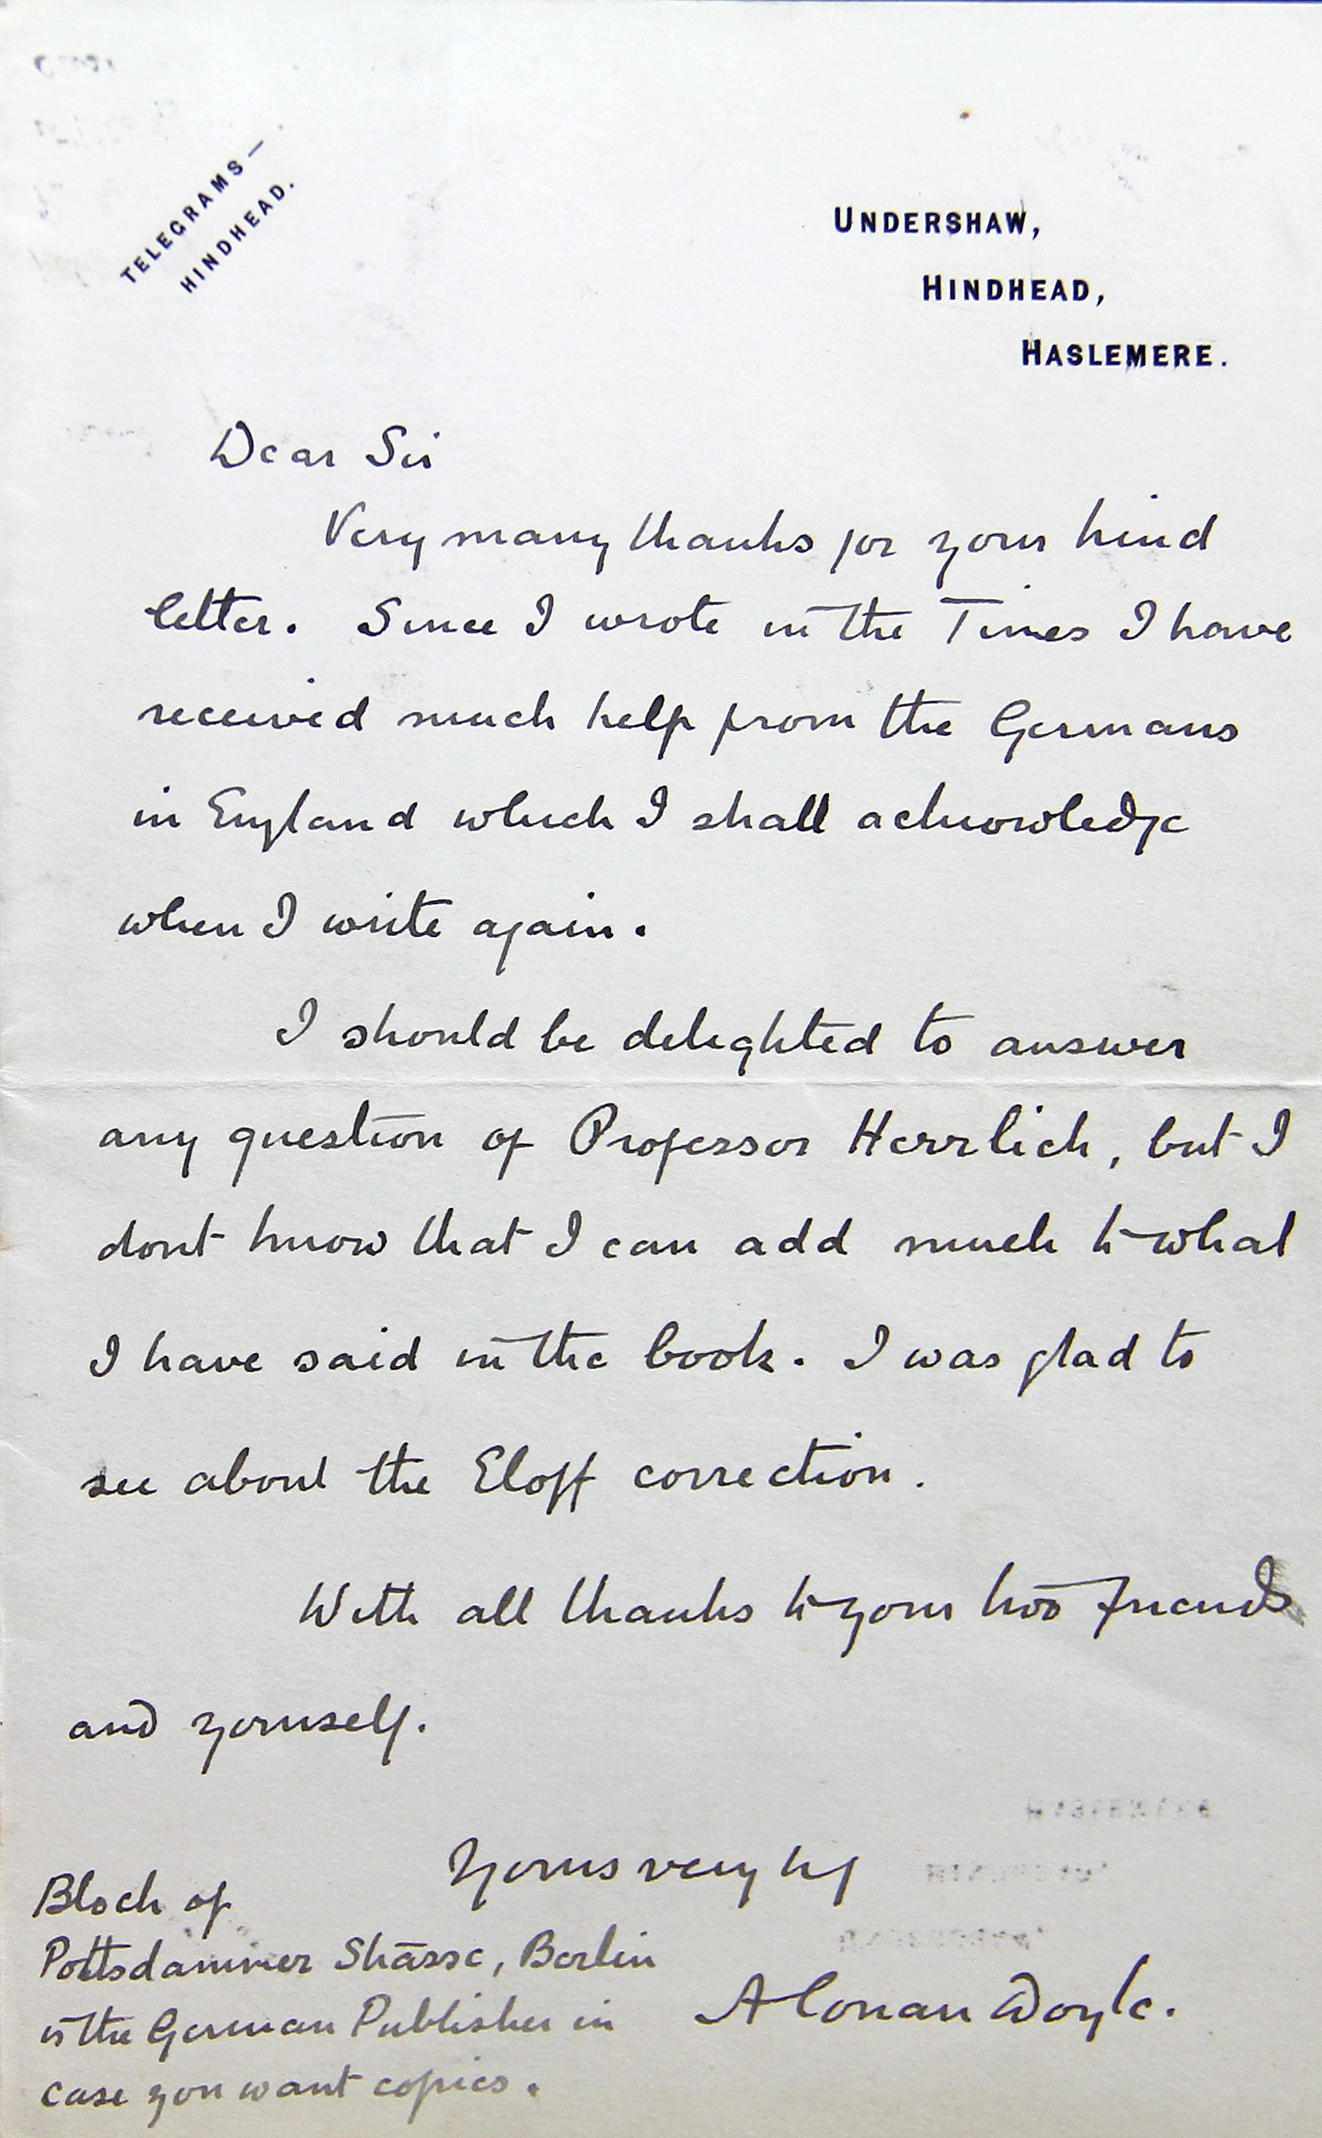 TELEGRAMS—
HINDHEAD.
UNDERSHAW,
HINDHEAD,
HASLEMERE.
Dear Sir
Very many thanks for your kind
letter. Since I wrote in the Times I have
received much help from the Germans
in England which I shall acknowledge
when I write again.
I should be delighted to answer
any question of Professor Herrlich, but I
dont know that I can add much to what
I have said in the book. I was glad to
see about the Eloff correction.
With all thanks to your two friends
and yourself.
Yours very try
A Conan Doyle.
Bloch of
Pottsdammer Strasse, Berlin
is the German Publisher in
case you want copies.